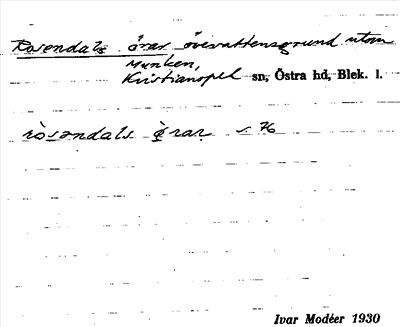 Rosendals örar, övervattensgrund utom
Munken,
Kristianopel sn, Östra hd, Blek. l.
ròsəndals ö̀rar s. 76
Ivar Modéer 1930